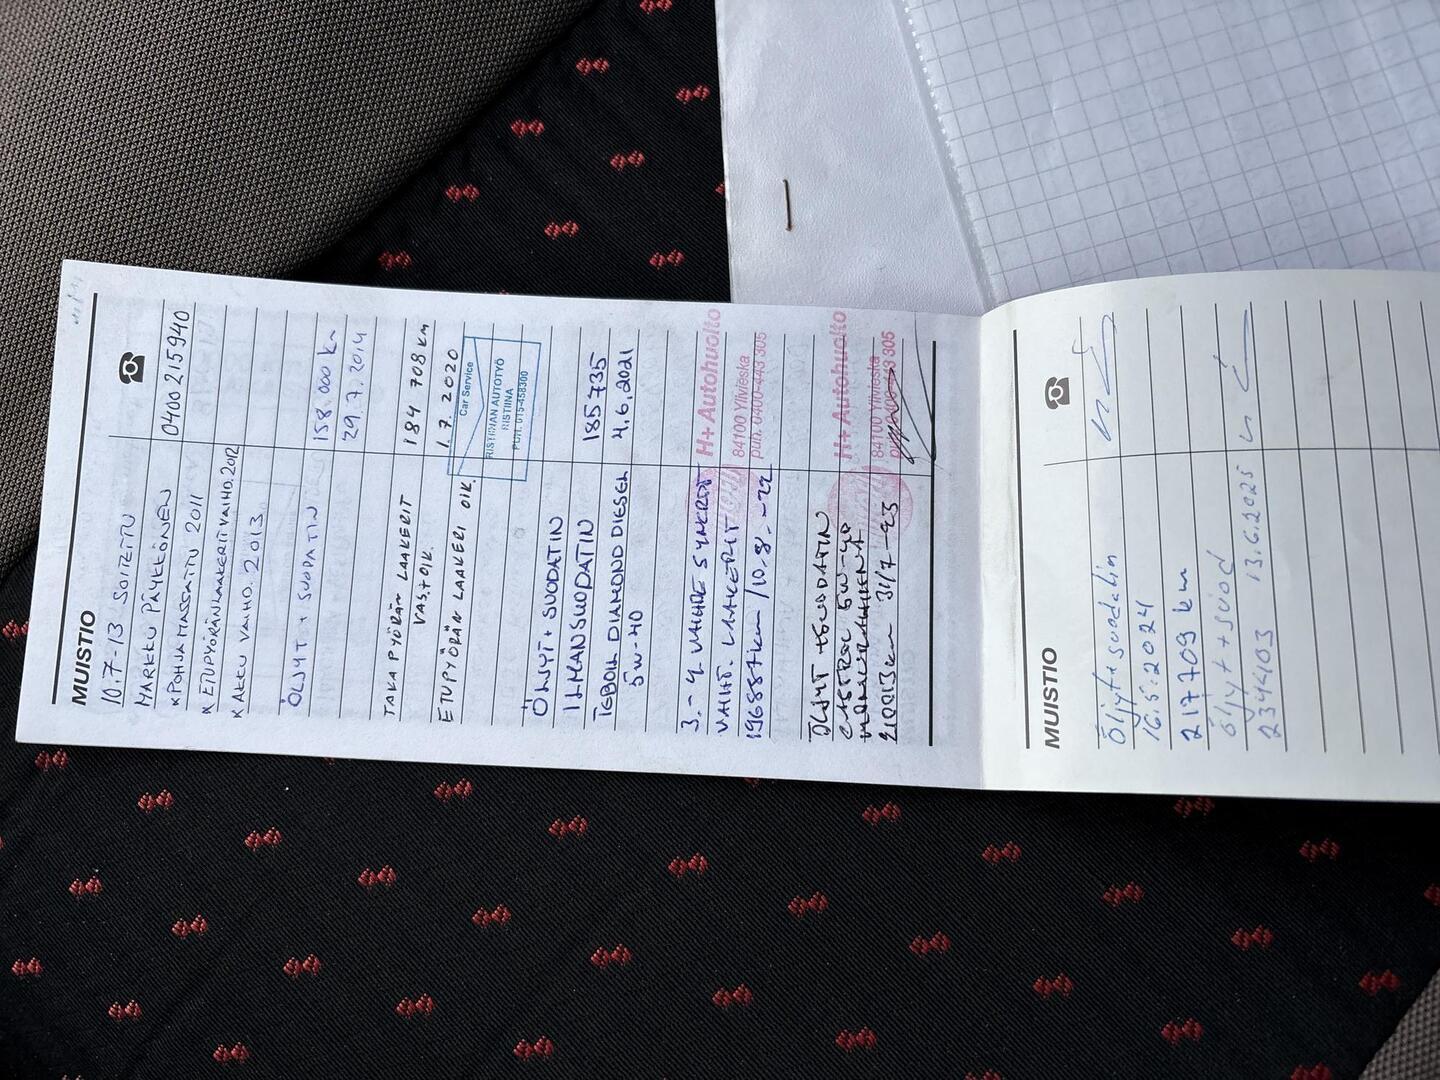 MUISTIO
10.7-13 SOITETTU
MARKKU PÄYKKÖNEN 0400 215940
× POHJA MASSATTU 2011
× ETUPYÖRÄN LAAKERIT VAIHD. 2012
× AKKU VAIHD. 2013
ÖLJYT + SUODATIN 158.000 km
29.7.2014
TAKA PYÖRÄN LAAKERIT 184 708 KM
VAS. + OIK.
ETUPYÖRÄN LAAKERI OIK. 1.7.2020
Car Service
RISTIINAN AUTOTYÖ
RISTIINA
PUH. 015-458300
ÖLJYT + SUODATIN
ILMANSUODATIN 185735
TEBOIL DIAMOND DIESEL 4.6.2021
5W-40
3. - 4 VAIHDE SYNCROT H+ Autohuolto
VAIHT. LAAKERIT 84100 Ylivieska
196887km /10.8.-22 puh. 0400-443 305
ÖLJYT + SUODATIN H+ Autohuolto
CASTROL 5W-40 84100 Ylivieska
212213km 31/7-23
MUISTIO
Öljyt + suodatin
16.5.2024
217709 km
öljyt + suod
234103 13.6.2025